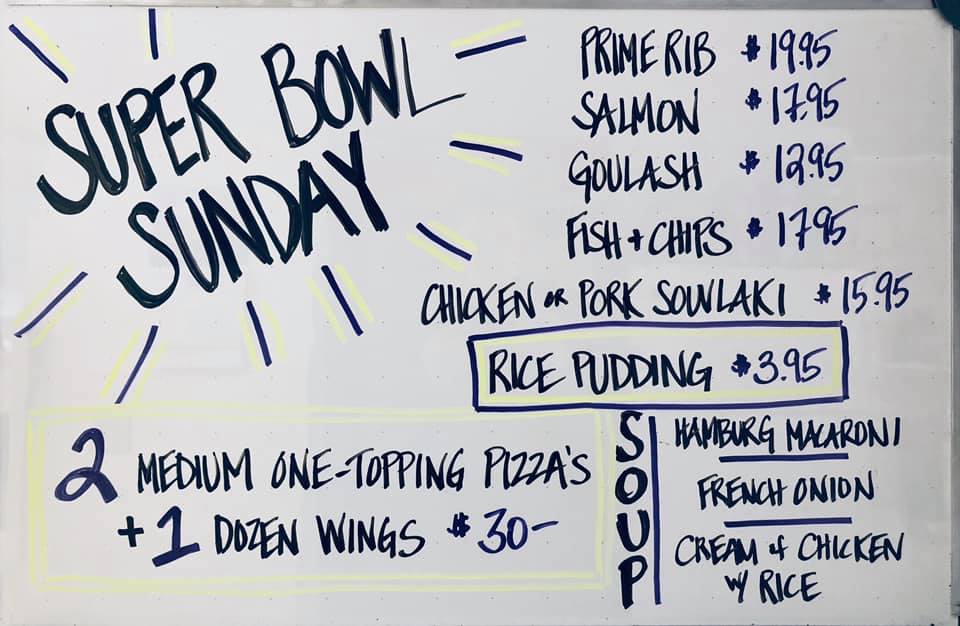 SUPER BOWL
SUNDAY
PRIME RIB $19.95
SALMON $17.95
GOULASH $12.95
FISH + CHIPS $17.95
CHICKEN OR PORK SOUVLAKI $15.95
RICE PUDDING $3.95
2 MEDIUM ONE-TOPPING PIZZA'S
+ 1 DOZEN WINGS $30-
SOUP
HAMBURG MACARONI
FRENCH ONION
CREAM of CHICKEN
W/ RICE